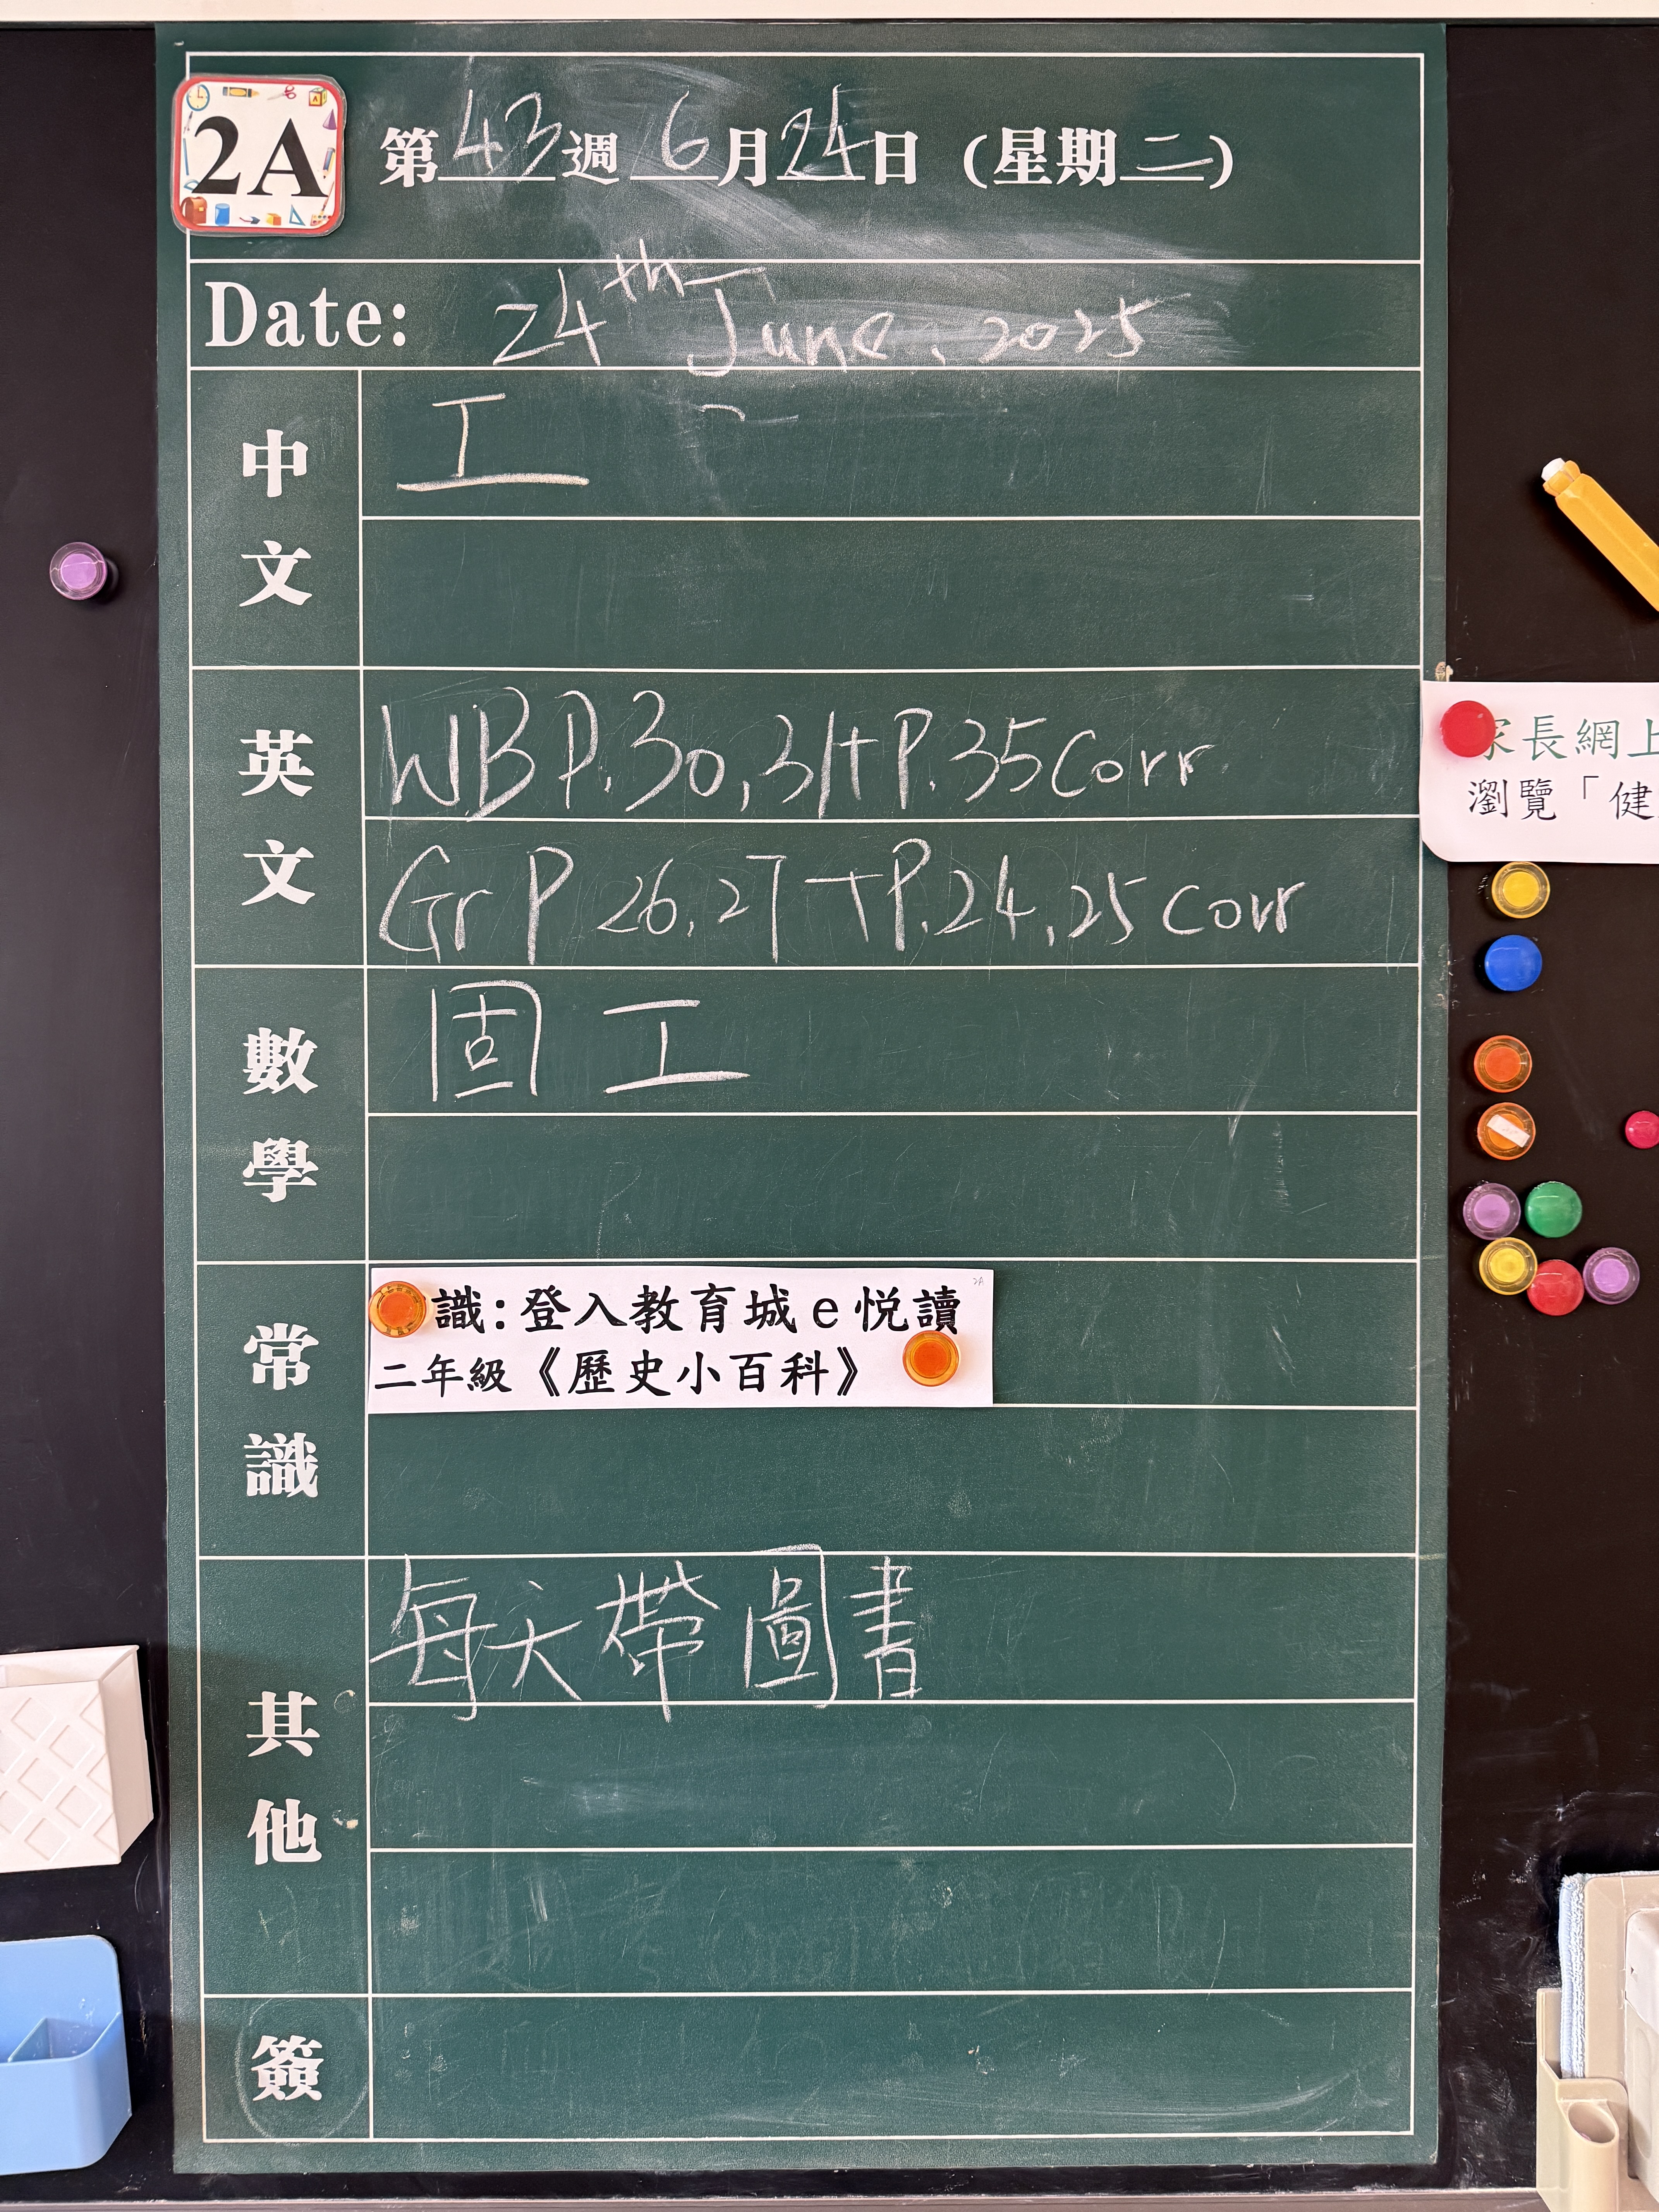 2A
第43週 6月24日 (星期二)
Date: 24th June, 2025
中文
工
英文
W.B P.30,31+P.35 Corr
Gr P 26,27 +P.24,25 corr
數學
固 工
常識
識:登入教育城e悅讀
2A
二年級《歷史小百科》
其他
每天帶圖書
簽
家長網上
瀏覽「健